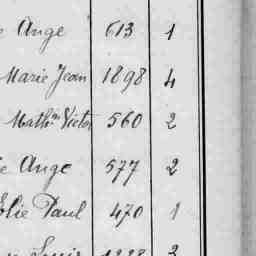 Ange 613 1
Marie Jean 1898 4
Math.in Victor 560 2
Ange 577 2
Elie Paul 470 1
Louis 1228 3